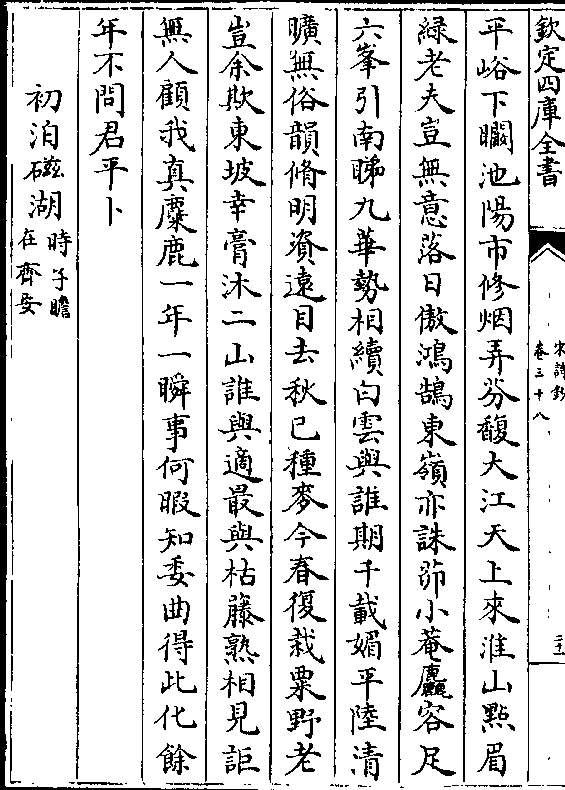 欽定四庫全書
宋詩鈔
卷三十八
平峪下矙池陽市修烟弄芬馥大江天上來淮山㸃眉
緑老夫豈無意落日傲鴻鵠東嶺亦誅茆小菴麤容足
六峯引南睇九華勢相續白雲與誰期千載媚平陸清
曠無俗韻脩明資遠目去秋已種麥今春復栽粟野老
豈余欺東坡幸膏沐二山誰與適最與枯藤熟相見詎
無人顧我真麋鹿一年一瞬事何暇知委曲得此化餘
年不問君平卜
初泊磁湖時子瞻
在齊安